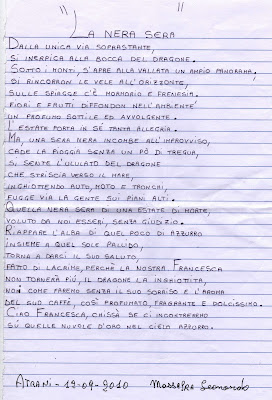 "
"
LA NERA SERA
DALLA UNICA VIA SOPRASTANTE,
SI INERPICA ALLA BOCCA DEL DRAGONE.
SOTTO I MONTI, S'APRE ALLA VALLATA UN AMPIO PANORAMA.
DI RINCORRON LE VELE ALL'ORIZZONTE,
SULLE SPIAGGE C'È MORMORIO E FRENESIA.
FIORI E FRUTTI DIFFONDON NELL'AMBIENTE
UN PROFUMO SOTTILE ED AVVOLGENTE.
L'ESTATE PORTA IN SE TANTA ALLEGRIA.
MA, UNA SERA NERA INCOMBE ALL'IMPROVVISO,
CADE LA PIOGGIA SENZA UN PÒ DI TREGUA,
SI SENTE L'ULULATO DEL DRAGONE
CHE STRISCIA VERSO IL MARE,
INGHIOTTENDO AUTO, MOTO E TRONCHI,
FUGGE VIA LA GENTE SUI PIANI ALTI.
QUELLA NERA SERA DI UNA ESTATE DI MORTE,
VOLUTO DA NOI ESSERI, SENZA GIUDIZIO.
RIAPPARE L'ALBA DI QUEL POCO DI AZZURRO
INSIEME A QUEL SOLE PALLIDO,
TORNA A DARCI IL SUO SALUTO,
FATTO DI LACRIME, PERCHÈ LA NOSTRA FRANCESCA
NON TORNERÀ PIÙ, IL DRAGONE LA INGHIOTTITA,
NOI COME FAREMO SENZA IL SUO SORRISO E L'AROMA
DEL SUO CAFFÈ, COSÌ PROFUMATO, FRAGRANTE E DOLCISSIMO.
CIAO FRANCESCA, CHISSÀ SE CI INCONTREREMO
SU QUELLE NUVOLE D'ORO NEL CIELO AZZURRO.
ATRANI - 19-09-2010 Leonardo